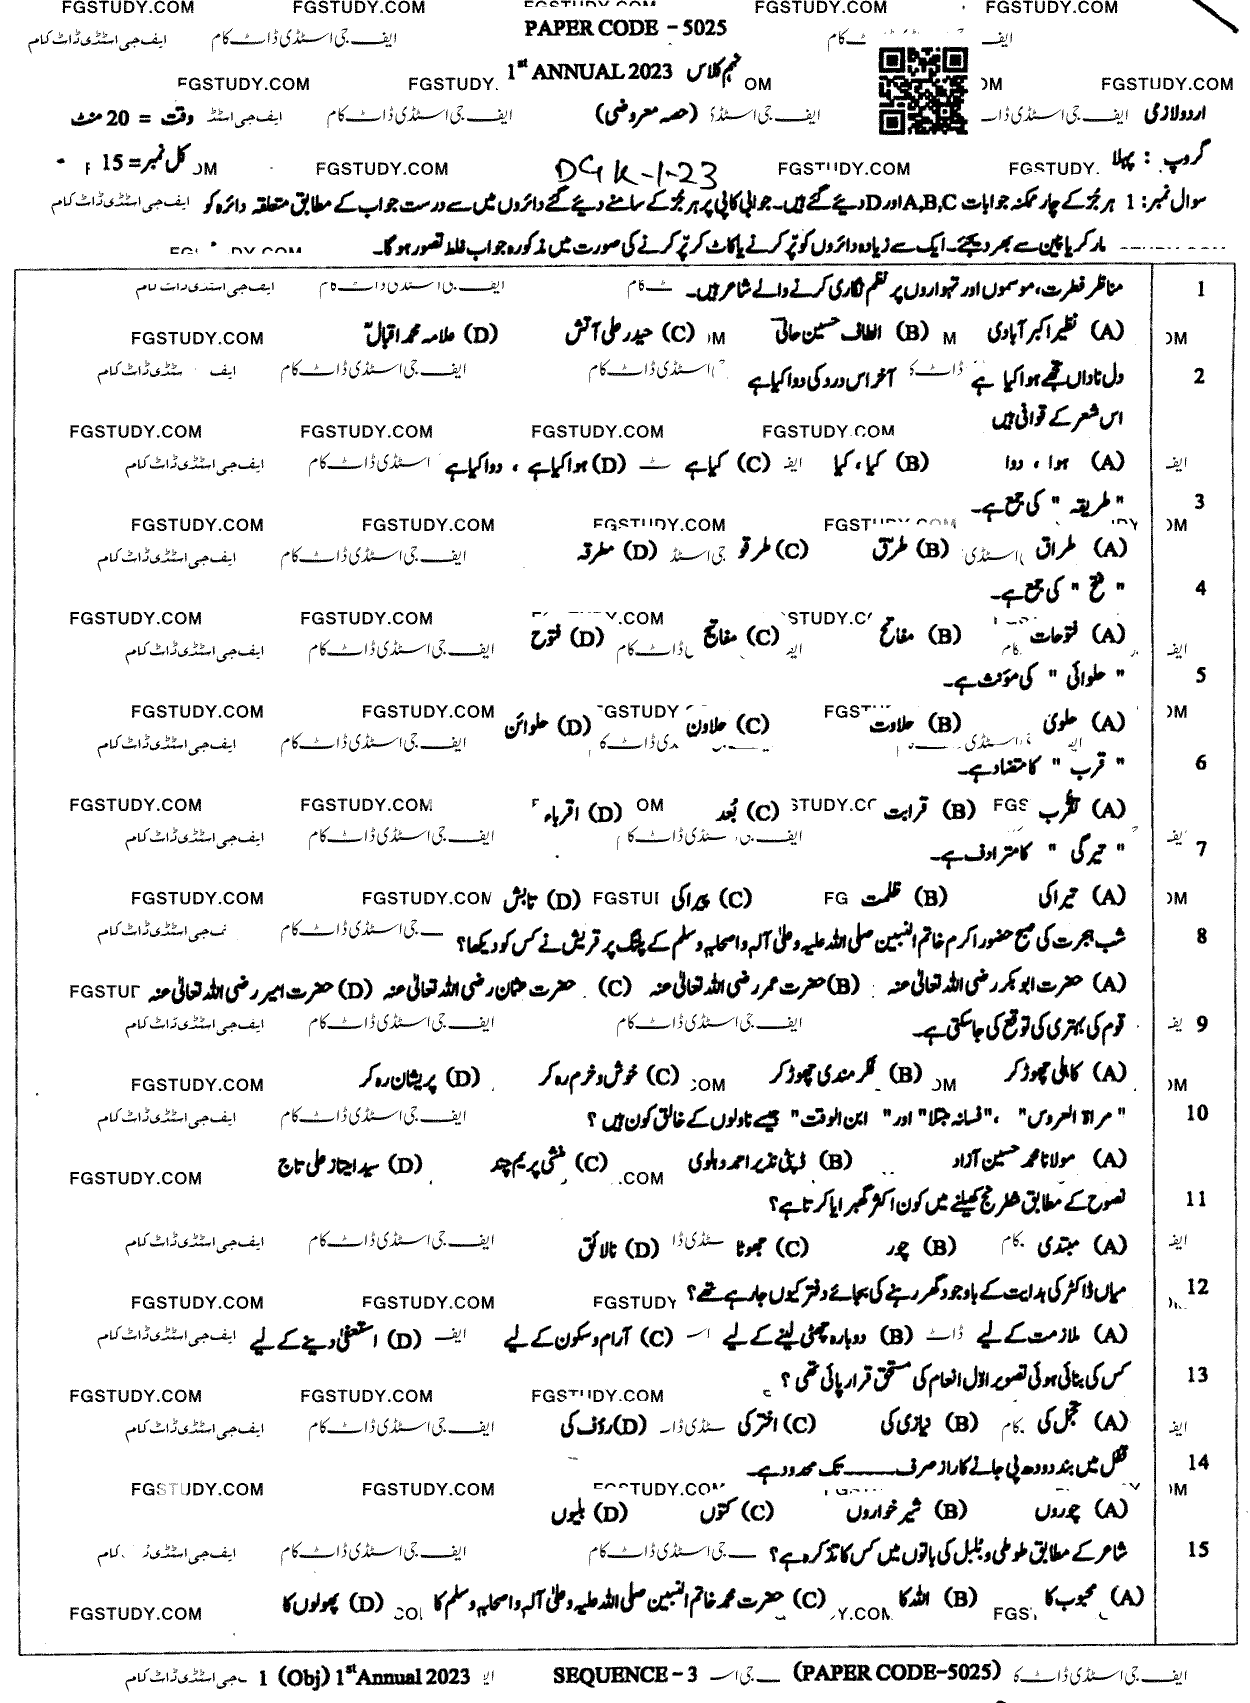 FGSTUDY.COM FGSTUDY.COM FGSTUDY.COM FGSTUDY.COM FGSTUDY.COM
PAPER CODE - 5025
ایف جی اسٹڈی ڈاٹ کام
1st ANNUAL 2023 نہم کلاس
FGSTUDY.COM FGSTUDY. OM OM FGSTUDY.COM
اردو لازمی (حصہ معروضی) وقت = 20 منٹ
گروپ : پہلا DGK-1-23 کل نمبر = 15
سوال نمبر: 1 ہر جز کے چار ممکنہ جوابات A,B,C اور D دیئے گئے ہیں۔ جوابی کاپی پر ہر جز کے سامنے دیئے گئے دائروں میں سے درست جواب کے مطابق متعلقہ دائرہ کو
مارکر یا پین سے بھر دیجئے۔ ایک سے زیادہ دائروں کو پُر کرنے یا کاٹ کر پُر کرنے کی صورت میں مذکورہ جواب غلط تصور ہوگا۔
1 مناظر فطرت، موسموں اور تہواروں پر نظم نگاری کرنے والے شاعر ہیں۔
(A) نظیر اکبر آبادی (B) الطاف حسین حالی (C) حیدر علی آتش (D) علامہ محمد اقبالؒ
2 دل ناداں تجھے ہوا کیا ہے آخر اس درد کی دوا کیا ہے
اس شعر کے قوافی ہیں
(A) ہوا ، دوا (B) کیا ، کیا (C) کیا ہے (D) ہوا کیا ہے ، دوا کیا ہے
3 " طریقہ " کی جمع ہے۔
(A) طراق (B) طرق (C) طرقو (D) مطرقہ
4 " فتح " کی جمع ہے۔
(A) فتوحات (B) مفاتح (C) مفاتیح (D) فتوح
5 " حلوائی " کی مؤنث ہے۔
(A) حلوی (B) حلاوت (C) حلاون (D) حلوائن
6 " قرب " کا متضاد ہے۔
(A) تقرّب (B) قرابت (C) بُعد (D) اقرباء
7 " تیرگی " کا مترادف ہے۔
(A) تیراکی (B) ظلمت (C) پیراکی (D) تابش
8 شب ہجرت کی صبح حضور اکرم خاتم النبیین صلی اللہ علیہ وعلیٰ آلہ واصحابہ وسلم کے پلنگ پر قریش نے کس کو دیکھا؟
(A) حضرت ابوبکر رضی اللہ تعالیٰ عنہ (B) حضرت عمر رضی اللہ تعالیٰ عنہ (C) حضرت عثمان رضی اللہ تعالیٰ عنہ (D) حضرت امیر رضی اللہ تعالیٰ عنہ
9 قوم کی بہتری کی توقع کی جاسکتی ہے۔
(A) کاہلی چھوڑ کر (B) فکر مندی چھوڑ کر (C) خوش و خرم رہ کر (D) پریشان رہ کر
10 " مراۃ العروس" ، "فسانہ مبتلا" اور " ابن الوقت" جیسے ناولوں کے خالق کون ہیں ؟
(A) مولانا محمد حسین آزاد (B) ڈپٹی نذیر احمد دہلوی (C) منشی پریم چند (D) سید امتیاز علی تاج
11 نصوح کے مطابق شطرنج کھیلنے میں کون اکثر گھبرایا کرتا ہے؟
(A) مبتدی (B) چور (C) جھوٹا (D) نالائق
12 میاں ڈاکٹر کی ہدایت کے باوجود گھر رہنے کی بجائے دفتر کیوں جارہے تھے؟
(A) ملازمت کے لیے (B) دوبارہ چھٹی لینے کے لیے (C) آرام و سکون کے لیے (D) استعفیٰ دینے کے لیے
13 کس کی بنائی ہوئی تصویر اوّل انعام کی مستحق قرار پائی تھی ؟
(A) تجمل کی (B) نیازی کی (C) اختر کی (D) رؤف کی
14 قفل میں بند دودھ پی جانے کا راز صرف ــــــــ تک محدود ہے۔
(A) چوروں (B) شیر خواروں (C) کتوں (D) بلیوں
15 شاعر کے مطابق طوطی و بلبل کی باتوں میں کس کا تذکرہ ہے؟
(A) محبوب کا (B) اللہ کا (C) حضرت محمد خاتم النبیین صلی اللہ علیہ وعلیٰ آلہ واصحابہ وسلم کا (D) پھولوں کا
1 (Obj) 1st Annual 2023 SEQUENCE - 3 (PAPER CODE-5025)